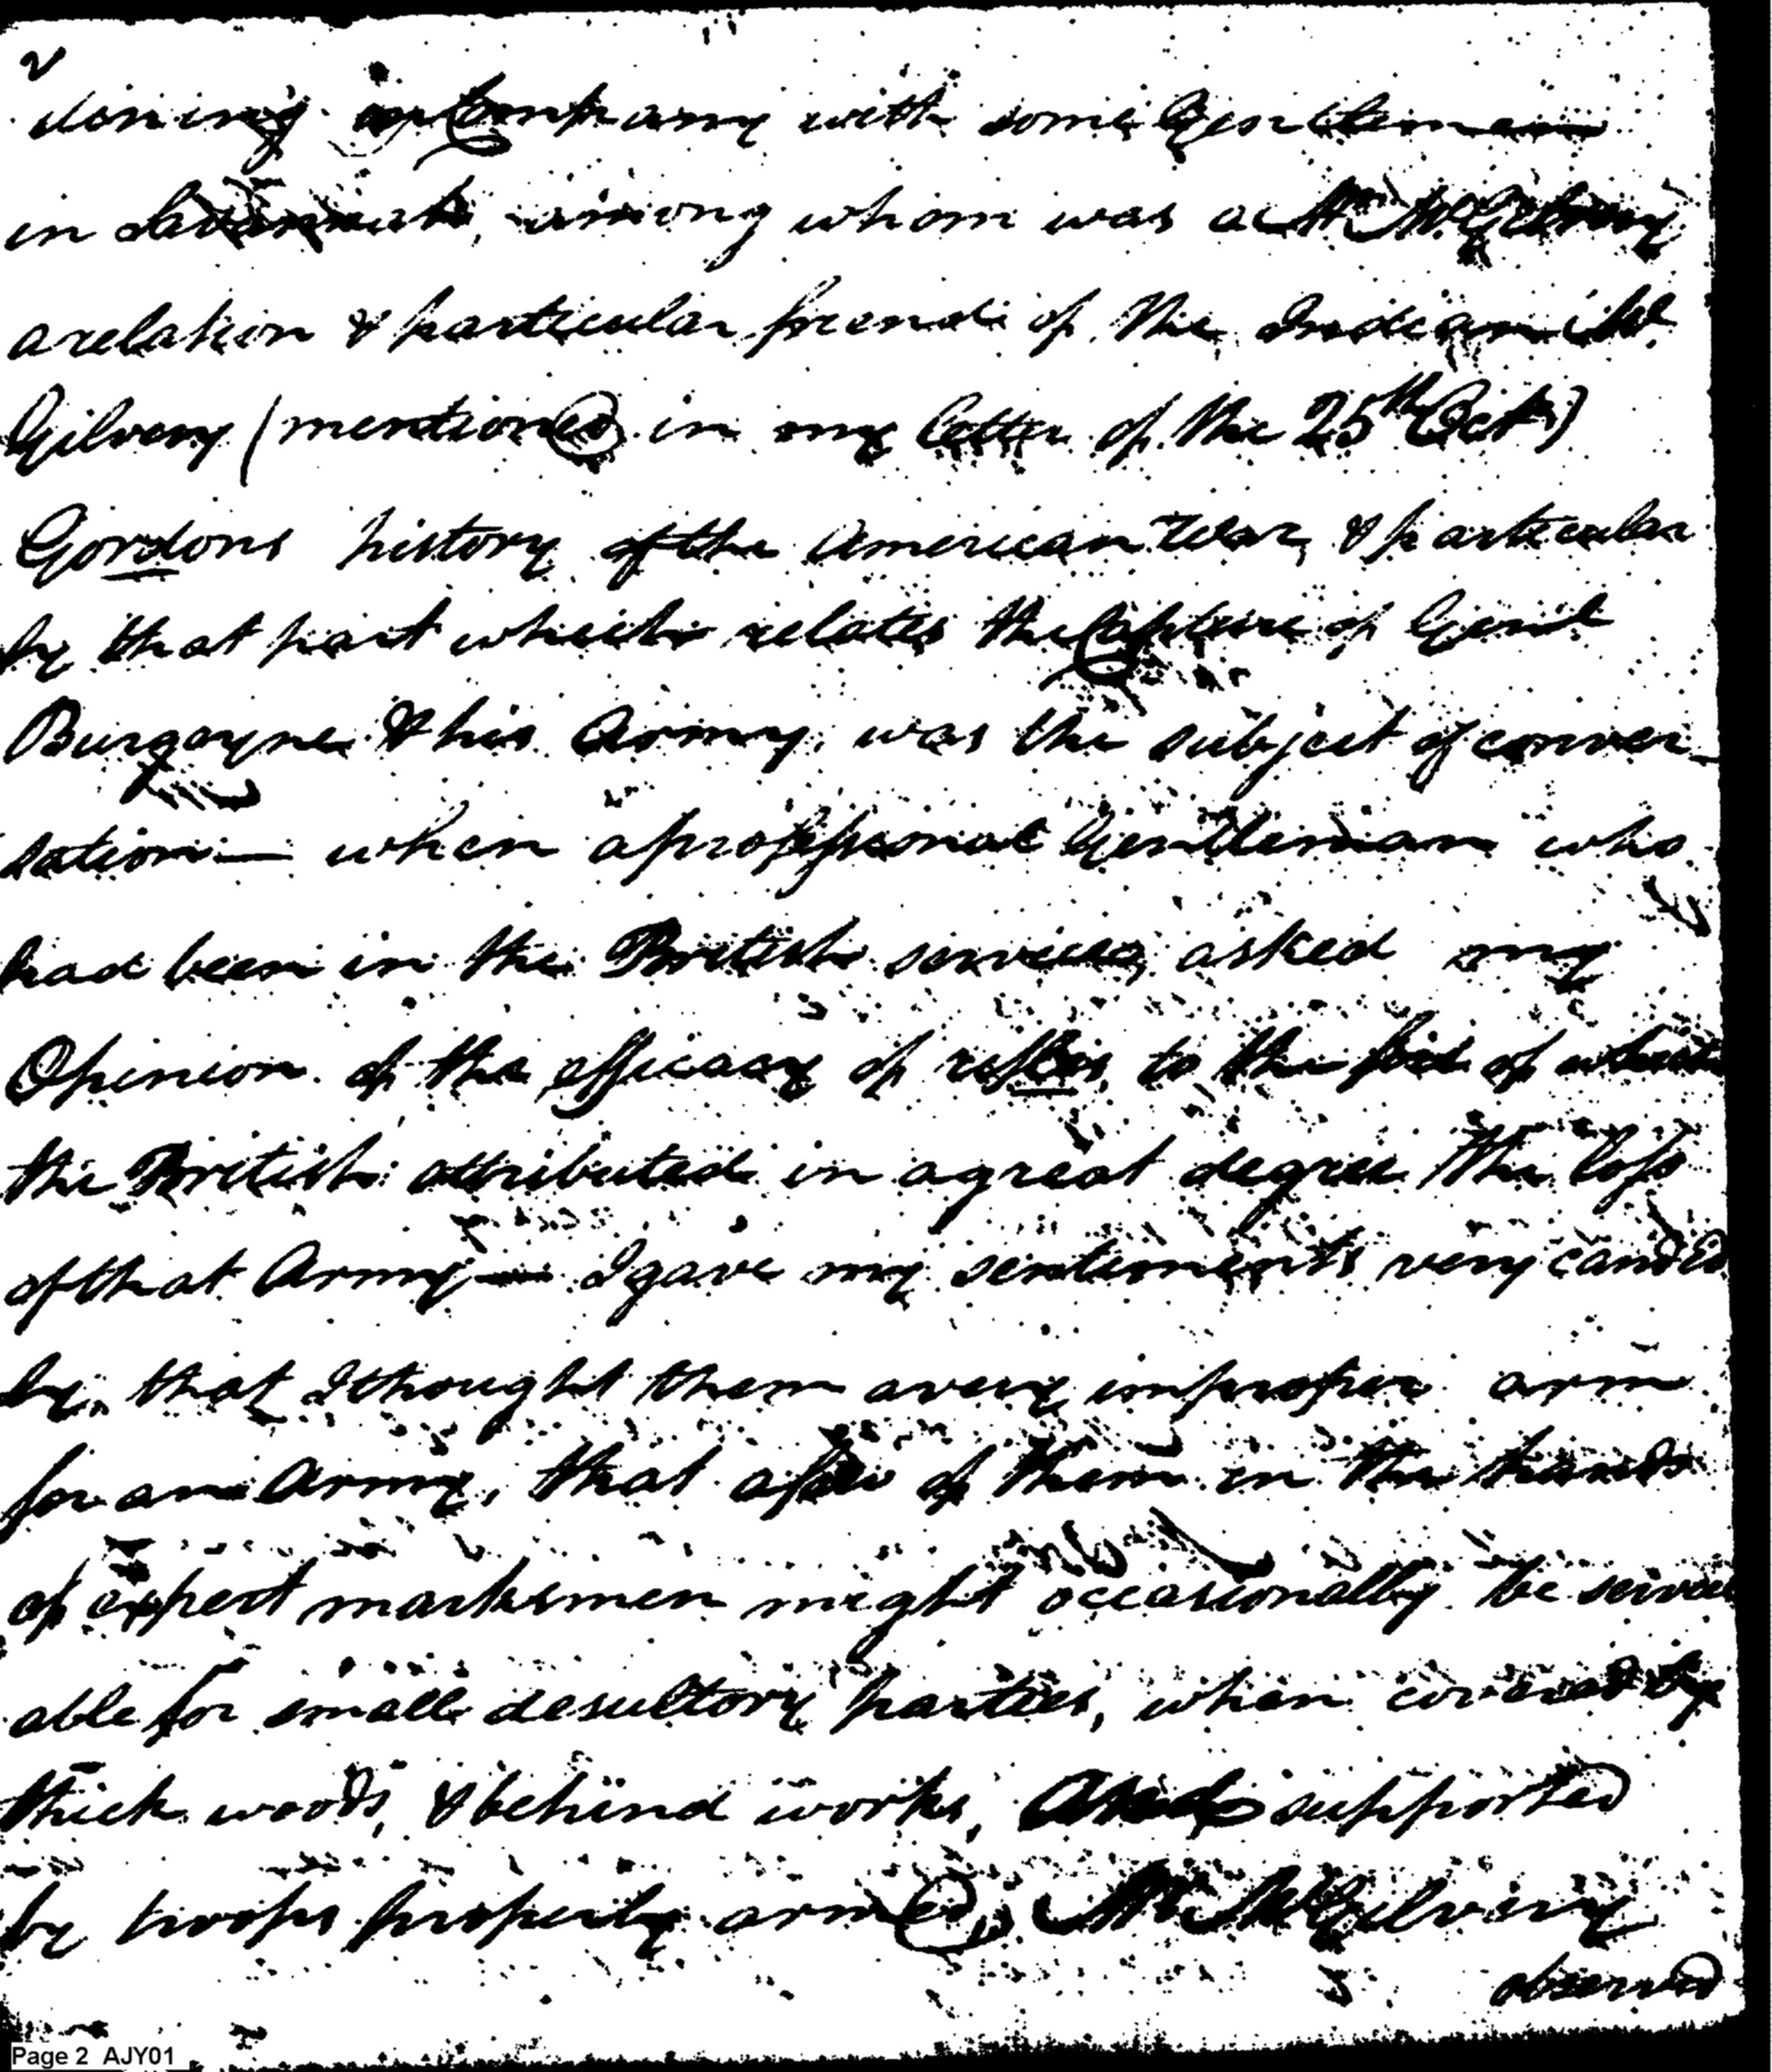 2
dining in Company with some Gentlemen
in Savannah, among whom was a Mr. McGilvery
a relation & particular friend of the Indian Mc
Gilvery (mentioned in my letter of the 25th Oct.)
Gordons history of the American War, & particular
ly that part which relates the Capture of Genl
Burgoyne & his Army, was the subject of conver-
sation — when a professional Gentleman who
had been in the British service, asked my
Opinion of the efficacy of rifles, to the fire of which
the British attributed in a great degree the loss
of that Army — I gave my sentiments very candid
ly, that I thought them a very improper arm
for an Army, that a few of them in the hands
of expert marksmen might occasionally be service
able for small desultory parties, when covered by
thick woods, & behind works, and supported
by troops properly armed, Mr. McGilvery
observed
Page 2 AJY01